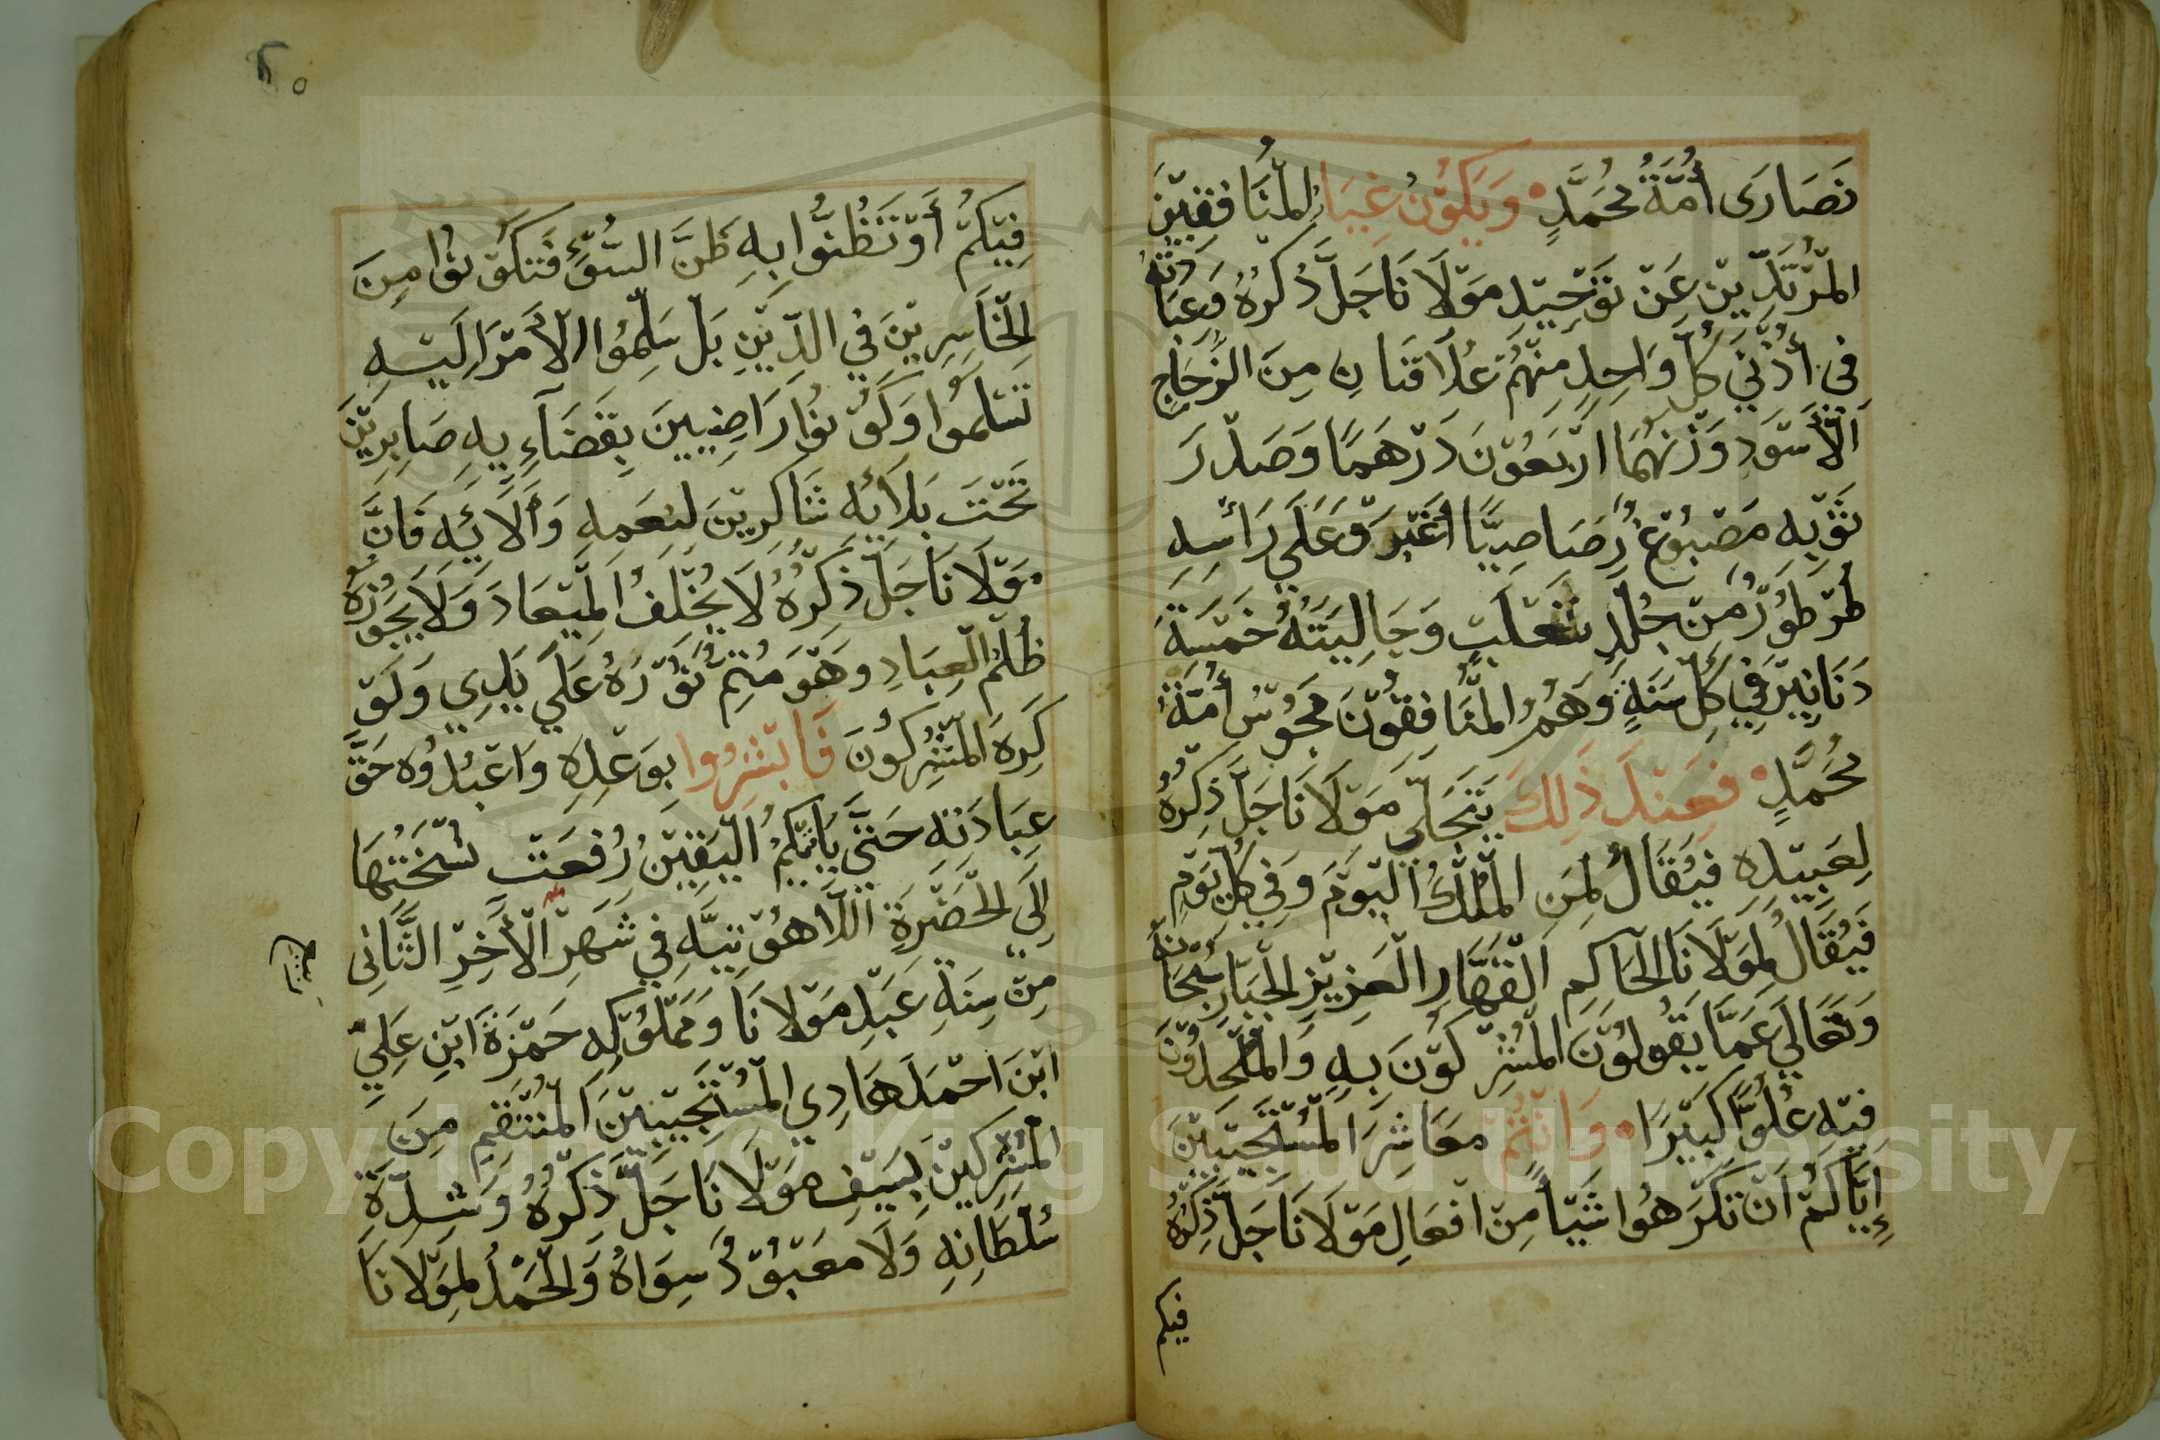 نَصَارَى أُمَّةُ مُحَمَّدٍ وَيَكُوْنُ غِيَارُ الْمُنَافِقِيْنَ
الْمُرْتَدِّيْنَ عَنْ تَوْحِيْدِ مَوْلَانَا جَلَّ ذِكْرُهُ وَعِبَادَتِهُ
فِي أُذُنَيْ كُلِّ وَاحِدٍ مِنْهُمْ عُلَاقَتَانِ مِنَ الزُّجَاجِ
اَلْأَسْوَدِ وَزْنُهُمَا ارْبَعُوْنَ دَرْهَمًا وَصَدْرَ
ثَوْبِهِ مَصْبُوْغٌ رَصَاصِيًّا أَغْبَرَ وَعَلَي رَاسِهِ
طَرْطُوْرٌ مِنْ جُلْدِ ثَعْلَبٍ وَجَالِيَتَهُ خَمْسَةَ
دَنَانِيْرَ فِي كُلِّ سَنَةٍ وَهُمُ الْمُنَافِقُوْنَ مَجُوْسُ أُمَّةُ
مُحَمَّدٍ فَعِنْدَ ذَلِكَ يَتَجَلَّى مَوْلَانَا جَلَّ ذِكْرُهُ
لِعَبِيْدِهِ فَيُقَالُ لِمَنِ الْمُلْكُ الْيَوْمَ وَفِي كُلِّ يَوْمٍ
فَيُقَالُ لِمَوْلَانَا الْحَاكِمِ الْقَهَّارِ الْعَزِيْزِ الْجَبَّارِ سُبْحَانَهُ
وَتَعَالَي عَمَّا يَقُولُوْنَ الْمُشْرِكُوْنَ بِهِ وَالْمُلْحِدُوْنَ
فِيْهِ عُلُوًّا كَبِيْرًا وَانْتُمْ مَعَاشِرَ الْمُسْتَجِيْبِيْنَ
إِيَّاكُمْ اَنْ تَكْرَهُوا شَيْأً مِنْ افْعَالِ مَوْلَانَا جَلَّ ذِكْرُهُ
فيكم
٢٥
فِيْكُمْ أَوْ تَظُنُّوا بِهِ ظَنَّ السُّوْءِ فَتَكُوْنُوا مِنَ
الْخَاسِرِيْنَ فِي الدِّيْنِ بَلْ سَلِّمُوا الْأَمْرَ اِلَيْهِ
تَسْلَمُوا وَكُوْنُوا رَاضِيِيْنَ بِقَضَاءِيهِ صَابِرِيْنَ
تَحْتَ بَلَائِهِ شَاكِرِيْنَ لِنِعَمِهِ وَآلَائِهِ فَانَّ
مَوْلَانَا جَلَّ ذِكْرُهُ لَا يُخْلِفُ الْمِيْعَادَ وَلَا يَجُوْزُهُ
ظُلْمُ الْعِبَادِ وَهْوَ مُتِمٌّ نُوْرَهُ عَلَي يَدِي وَلَوْ
كَرِهَ الْمُشْرِكُوْنَ فَابْشِرُوا بِوَعْدِهِ وَاعْبُدُوْهُ حَقَّ
عِبَادَتِهِ حَتَّي يَاتِيْكُمُ الْيَقِيْنُ رُفِعَتْ نُسْخَتُهَا
اِلَي الْحَضْرَةِ اللَّاهُوْتِيَّهِ فِي شَهْرِ الْأَخِرِ الثَّانِي
مِنْ سِنَةِ عَبْدِ مَوْلَانَا وَمَمْلُوْكِهِ حَمْزَةَ ابْنِ عَلِيٍّ
ابْنَ احْمَدَ هَادِي الْمُسْتَجِيْبِيْنَ الْمُنْتَقِمِ مِنَ
الْمُشْرِكِيْنَ بِسَيْفِ مَوْلَانَا جَلَّ ذِكْرُهُ وَشِدَّةِ
سُلْطَانِهِ وَلَا مَعْبُوْدُ سِوَاهُ وَالْحَمْدُ لِمَوْلَانَا
Copyright © King Saud University